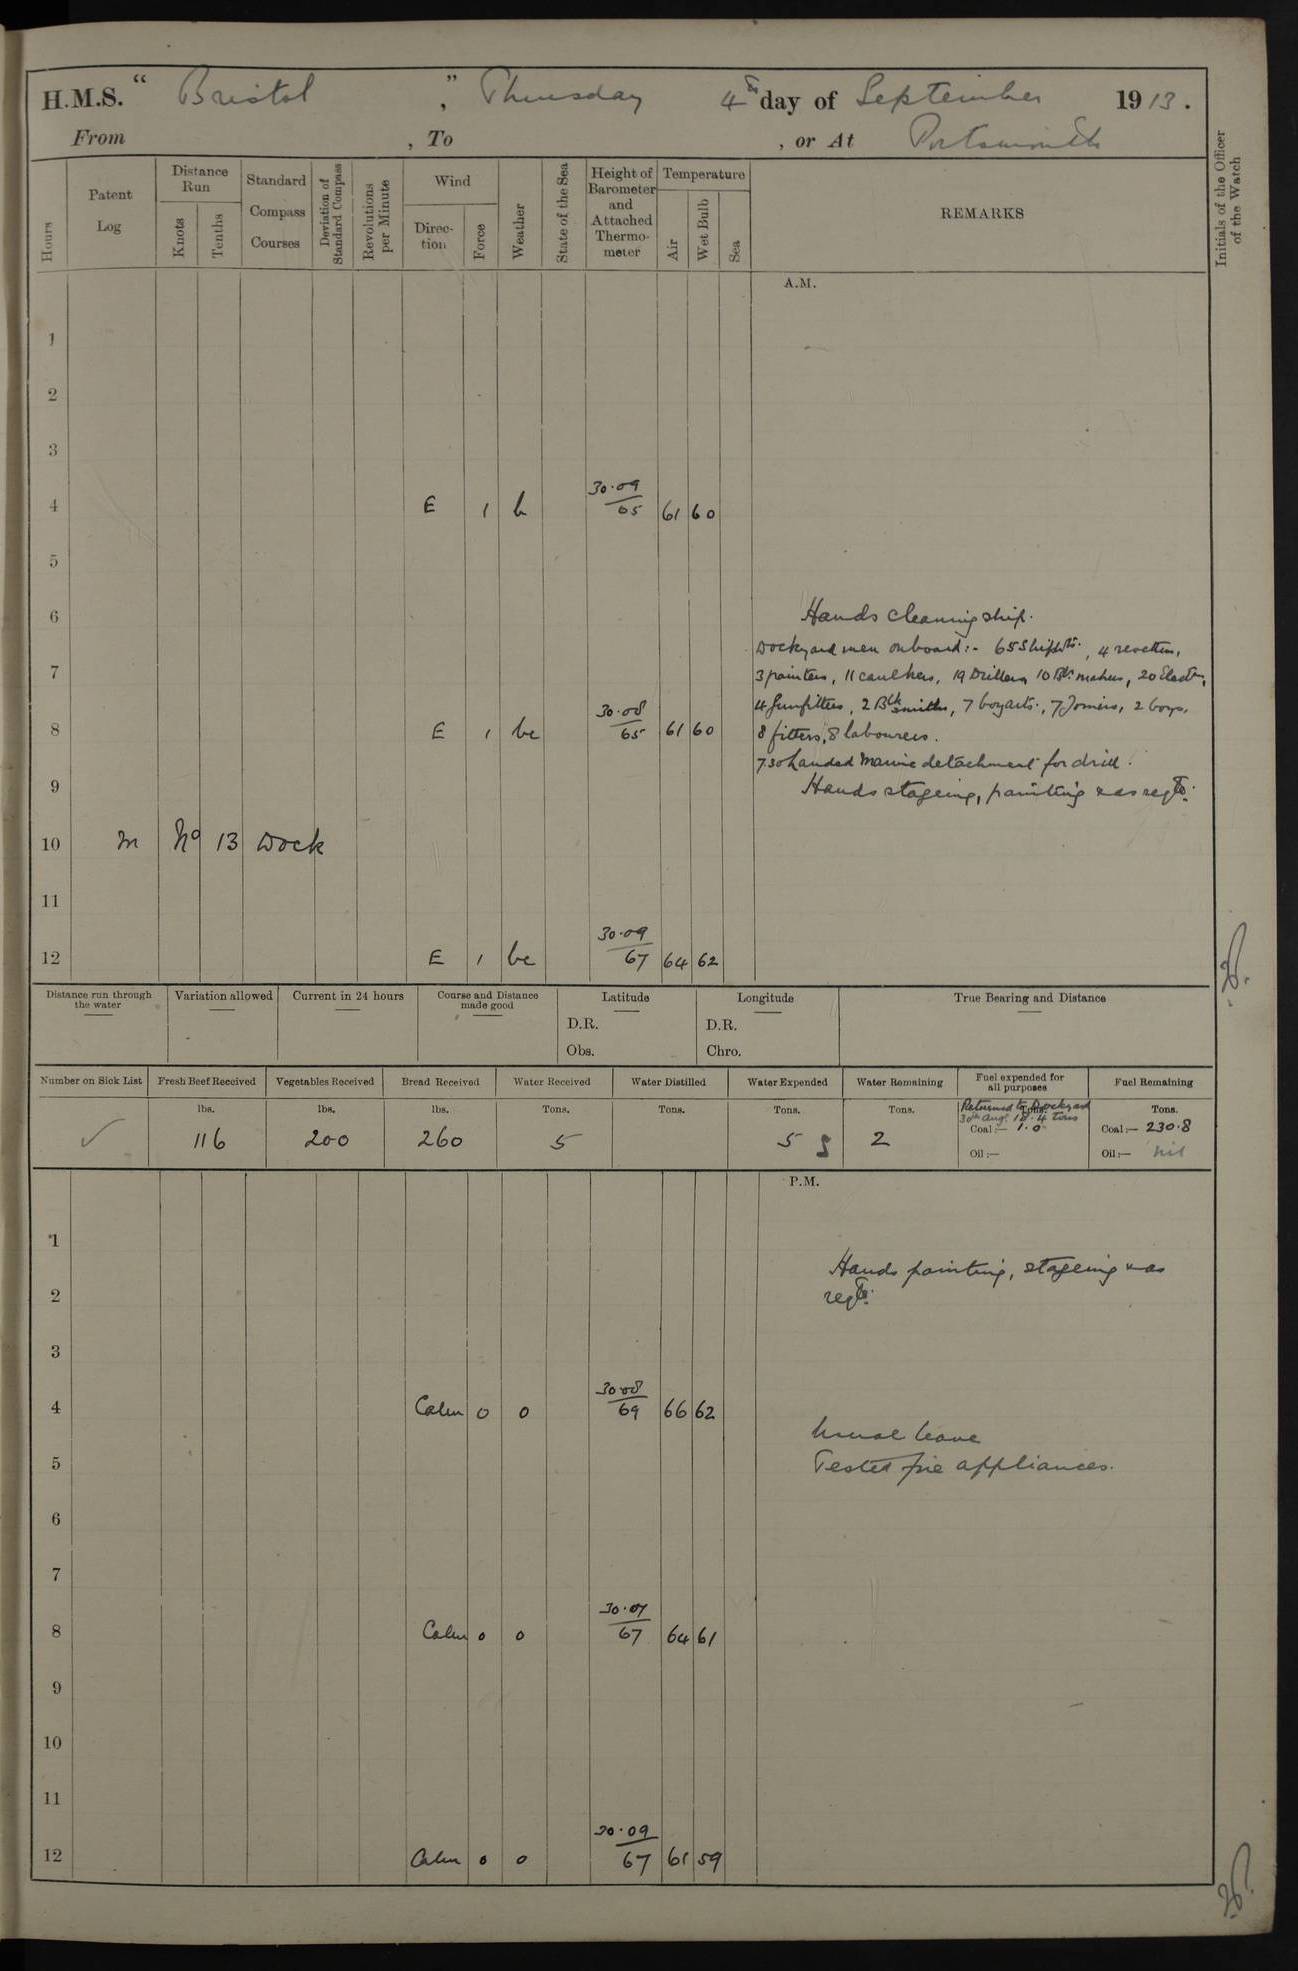 H.M.S. “ Bristol ” , Thursday 4th day of September 1913.
From , To , or At Portsmouth
Hours
Patent Log
Distance Run
Knots
Tenths
Standard Compass Courses
Deviation of Standard Compass
Revolutions per Minute
Wind
Direction
Force
Weather
State of the Sea
Height of Barometer and Attached Thermometer
Temperature
Air
Wet Bulb
Sea
REMARKS
Initials of the Officer of the Watch
A.M.
1
2
3
4 E 1 b 30.09/65 61 60
5
6 Hands cleaning ship.
Dockyard men onboard:- 65 Shipwts., 4 rivetters,
7 3 painters, 11 caulkers, 19 Drillers 10 Blr. makers, 20 Elect
4 Gunfitters, 2 Blk smiths, 7 boy arts., 7 Joiners, 2 boys,
8 E 1 bc 30.08/65 61 60 8 fitters, 8 labourers.
7 30 Landed Marine detachment for drill.
9 Hands stageing, painting & as reqte.
10 In No 13 Dock
11
12 E 1 bc 30.09/67 64 62
Distance run through the water
Variation allowed
Current in 24 hours
Course and Distance made good
Latitude
D.R.
Obs.
Longitude
D.R.
Chro.
True Bearing and Distance
Number on Sick List
Fresh Beef Received
Vegetables Received
Bread Received
Water Received
Water Distilled
Water Expended
Water Remaining
Fuel expended for all purposes
Fuel Remaining
lbs. lbs. lbs. Tons. Tons. Tons. Tons. Tons. Tons.
Returned to Dockyard
30th Aug. 18.4 tons
116 200 260 5 5 2 Coal:— 1.0 Coal:— 230.8
Oil:— Oil:— nil
P.M.
1
Hands painting, stageing & as
2 reqte.
3
4 Calm 0 0 30.08/69 66 62
Usual leave
5 Tested fire appliances.
6
7
8 Calm 0 0 30.07/67 64 61
9
10
11
12 Calm 0 0 30.09/67 61 59